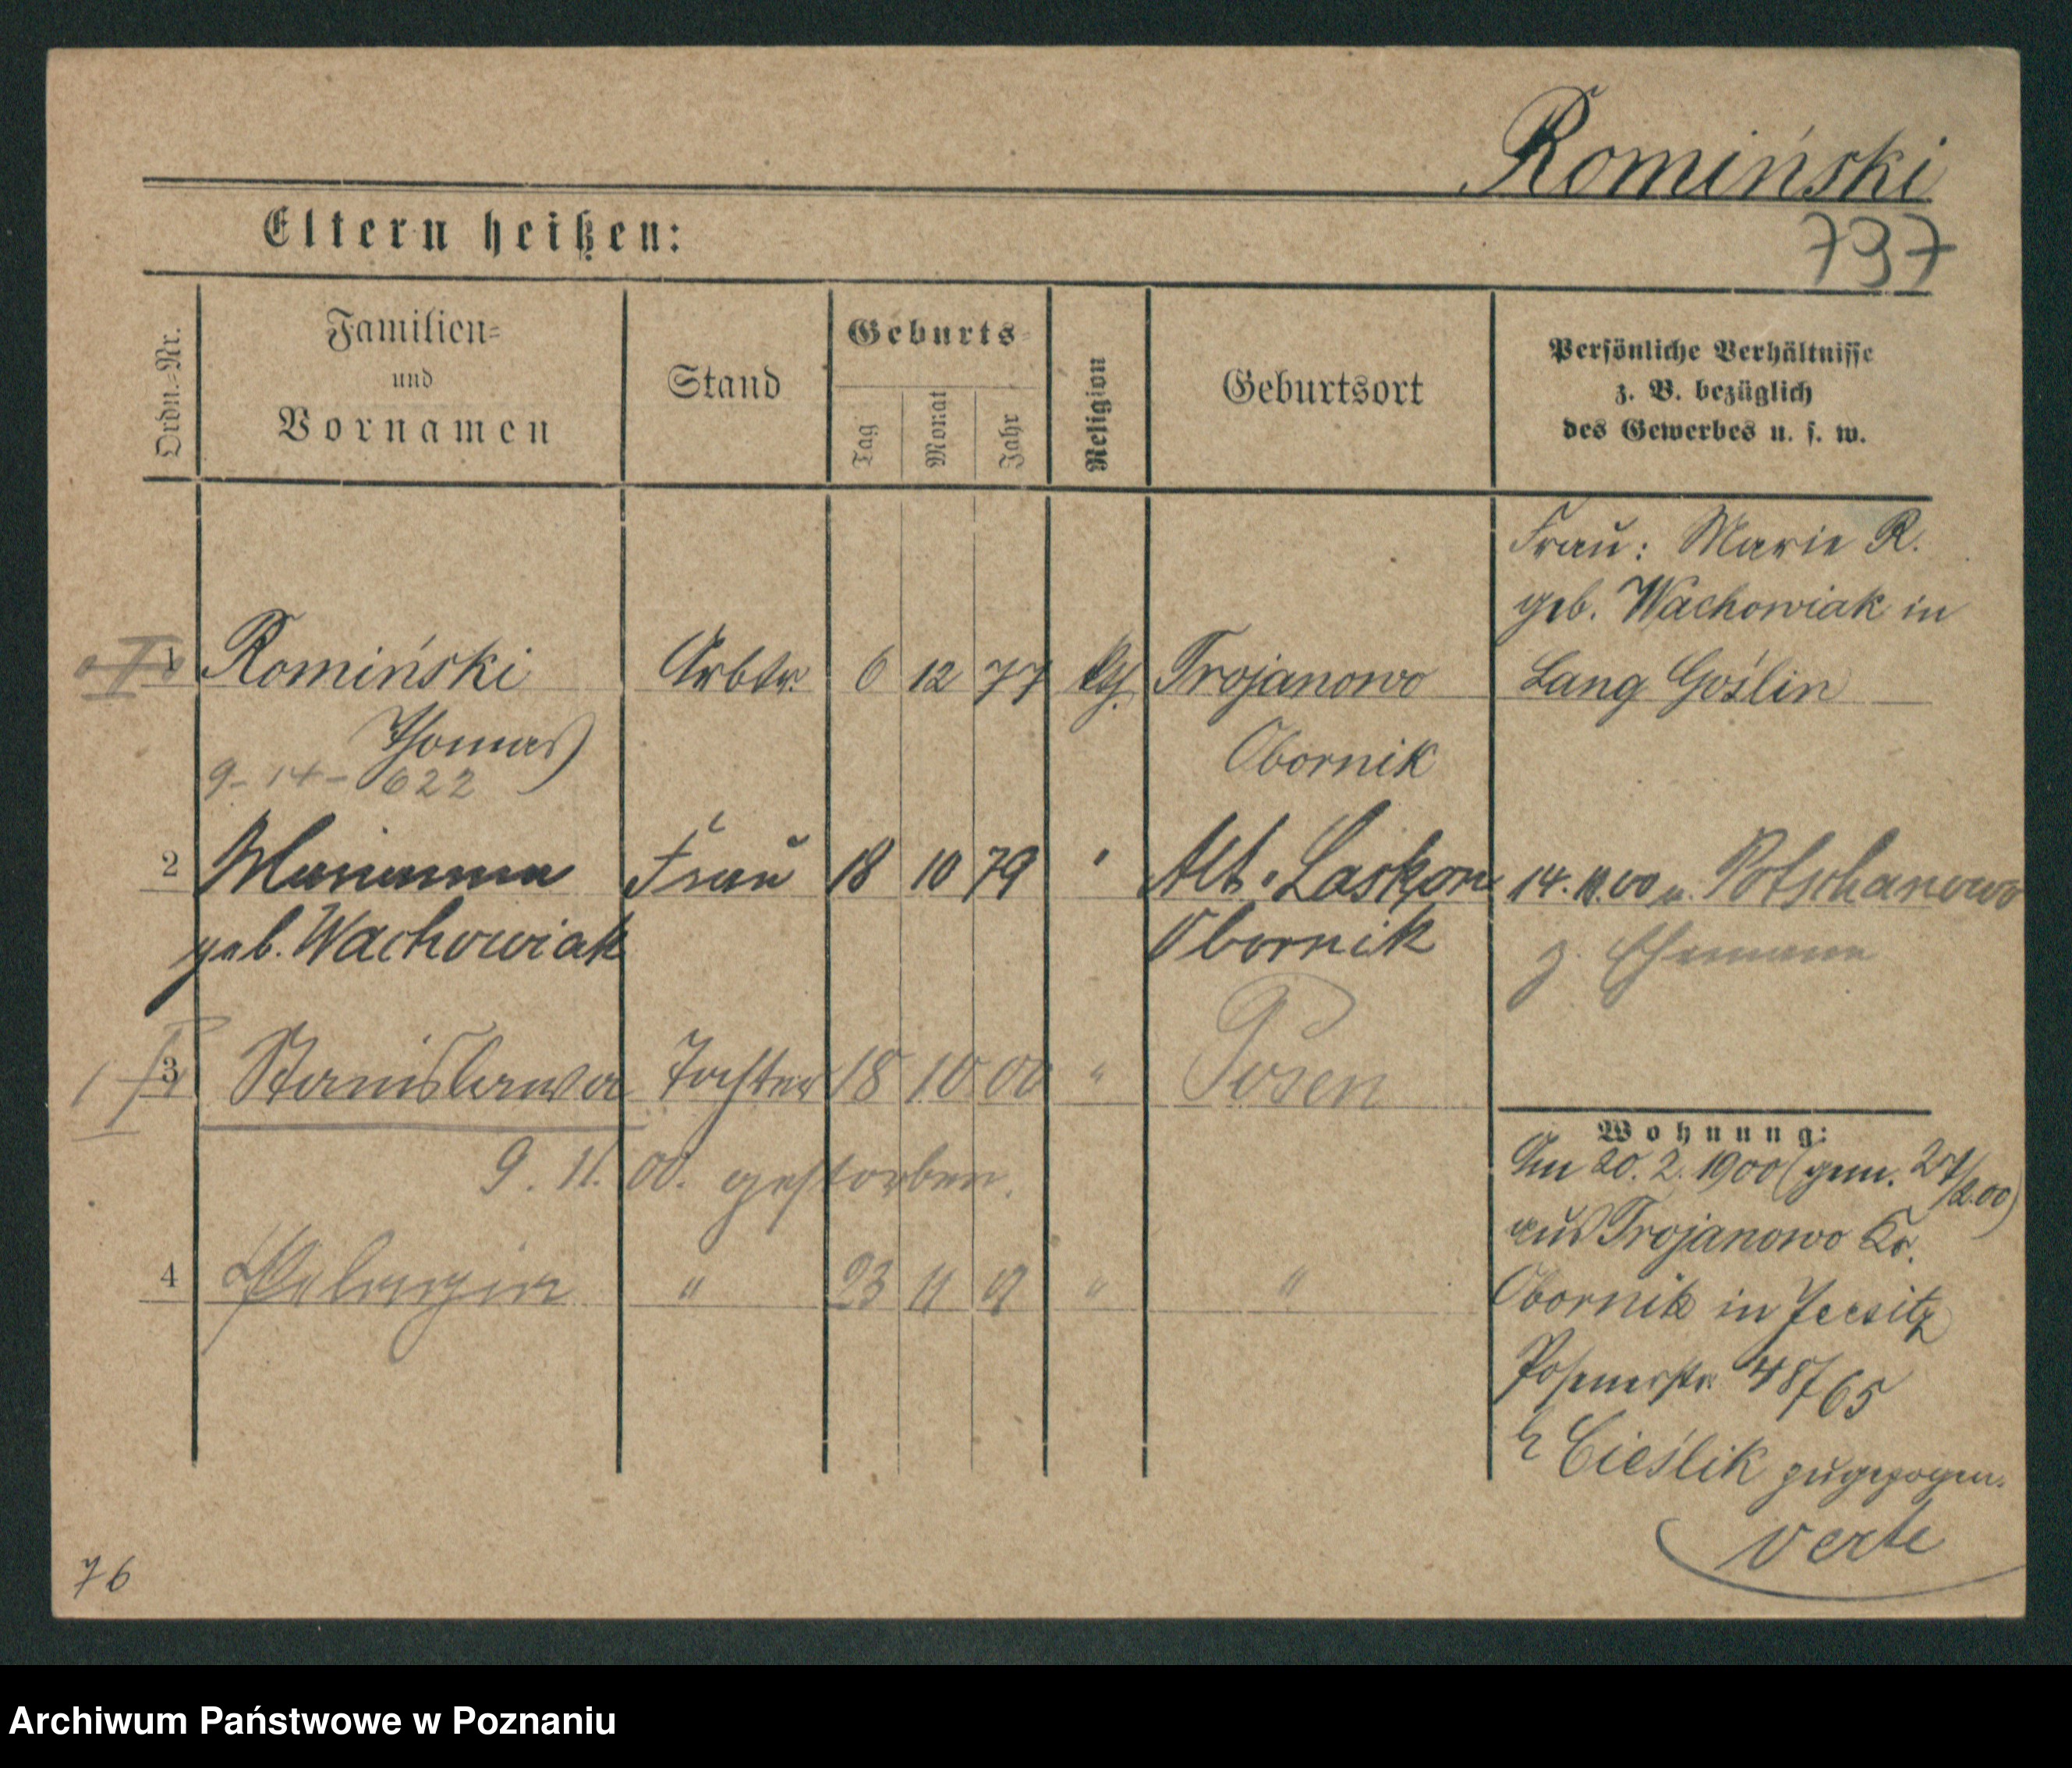 Romiński
797
Eltern heißen:
Ordn.=Nr.
Familien=
und
Vornamen
Stand
Geburts=
Tag
Monat
Jahr
Religion
Geburtsort
Persönliche Verhältnisse
z. B. bezüglich
des Gewerbes u. s. w.
Frau: Marie R.
geb. Wachowiak in
1 Romiński Arbtr. 6 12 77 kth. Trojanowo Lang Goślin
Thomas Obornik
9-14-622
2 Marianna Frau 18 10 79 " Alt. Laskon 14. 11. 00 v. Potschanowo
geb. Wachowiak Obornik z. Ehemann
3 Stanislawa Tochter 18 10 00 " Posen
9. 11. 00. gestorben.
4 Pelagia " 23 11 " "
Wohnung:
Am 20. 2. 1900 (gem. 24/2.00)
aus Trojanowo Kr.
Obornik in Jersitz
Posenerstr. 48/65
b Cieślik zugezogen.
verte
76
Archiwum Państwowe w Poznaniu